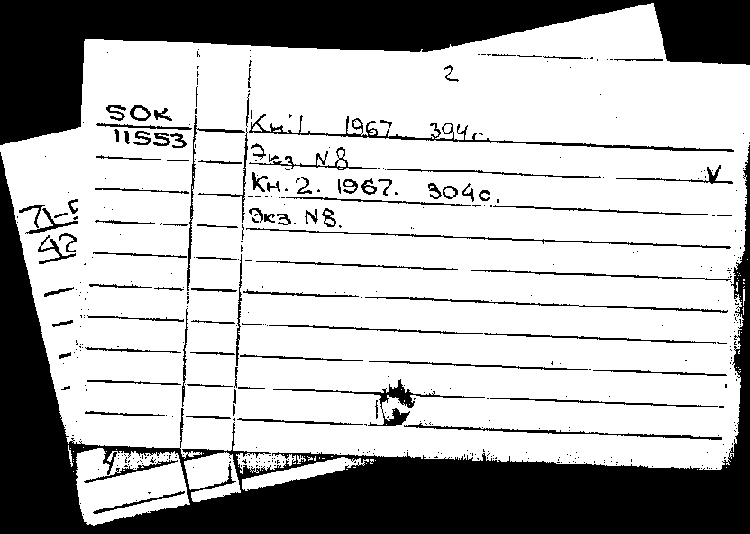 2
50К
11553
Кн.1. 1967. 394с.
Экз. N8
V
Кн. 2. 1967. 304с.
Экз. N8.
42
4